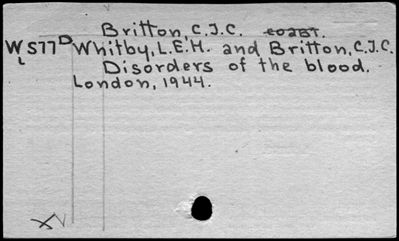 Britton, C.J.C.
WS77D Whitby, L.E.H. and Britton, C.J.C.
L
Disorders of the blood.
London, 1944.